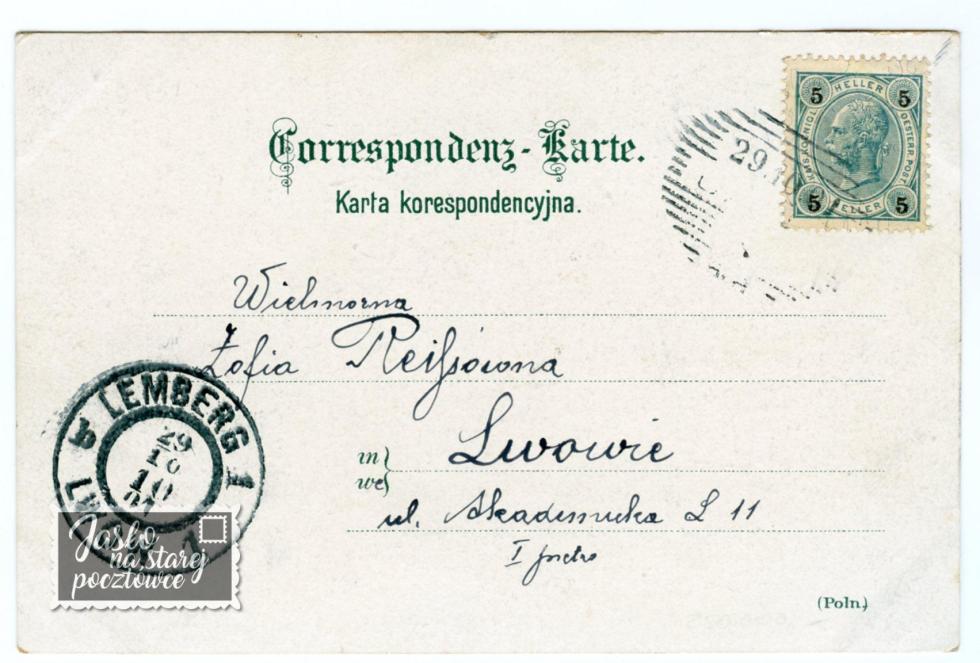 Correspondenz-Karte.
Karta korespondencyjna.
5 HELLER 5
KAIS. KOENIGL. OESTERR. POST
5 HELLER 5
29 10
Wielmożna
Zofia Reissówna
in
we
Lwowie
ul. Akademicka L 11
I piętro
LEMBERG 1
b
29
10
10
Jasło
na starej
pocztówce
(Poln.)